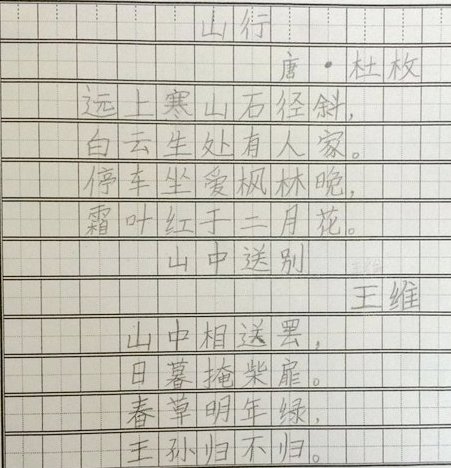 山行
唐·杜枚
远上寒山石径斜，
白云生处有人家。
停车坐爱枫林晚，
霜叶红于二月花。
山中送别
王维
山中相送罢，
日暮掩柴扉。
春草明年绿，
王孙归不归。